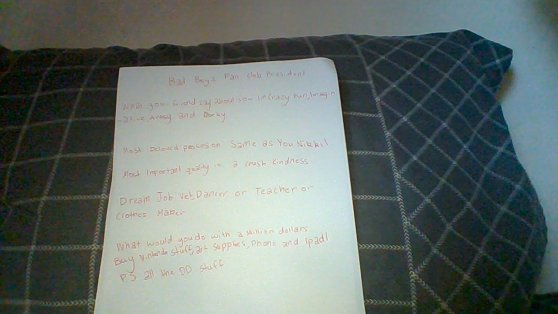 Bad Boyz Fan club President
What your friend say about you im Crazy Fun,
alive, Artsy and Dorky
Most person Same as You Nikki!
Most Important quality in a crush Kindness
Dream Job Vet, Dancer, or Teacher or
Clothes Maker
What would you do with a Million dollars
Buy Nintendo stuff, art supplies, Phone and Ipad!
P.S all the DD stuff